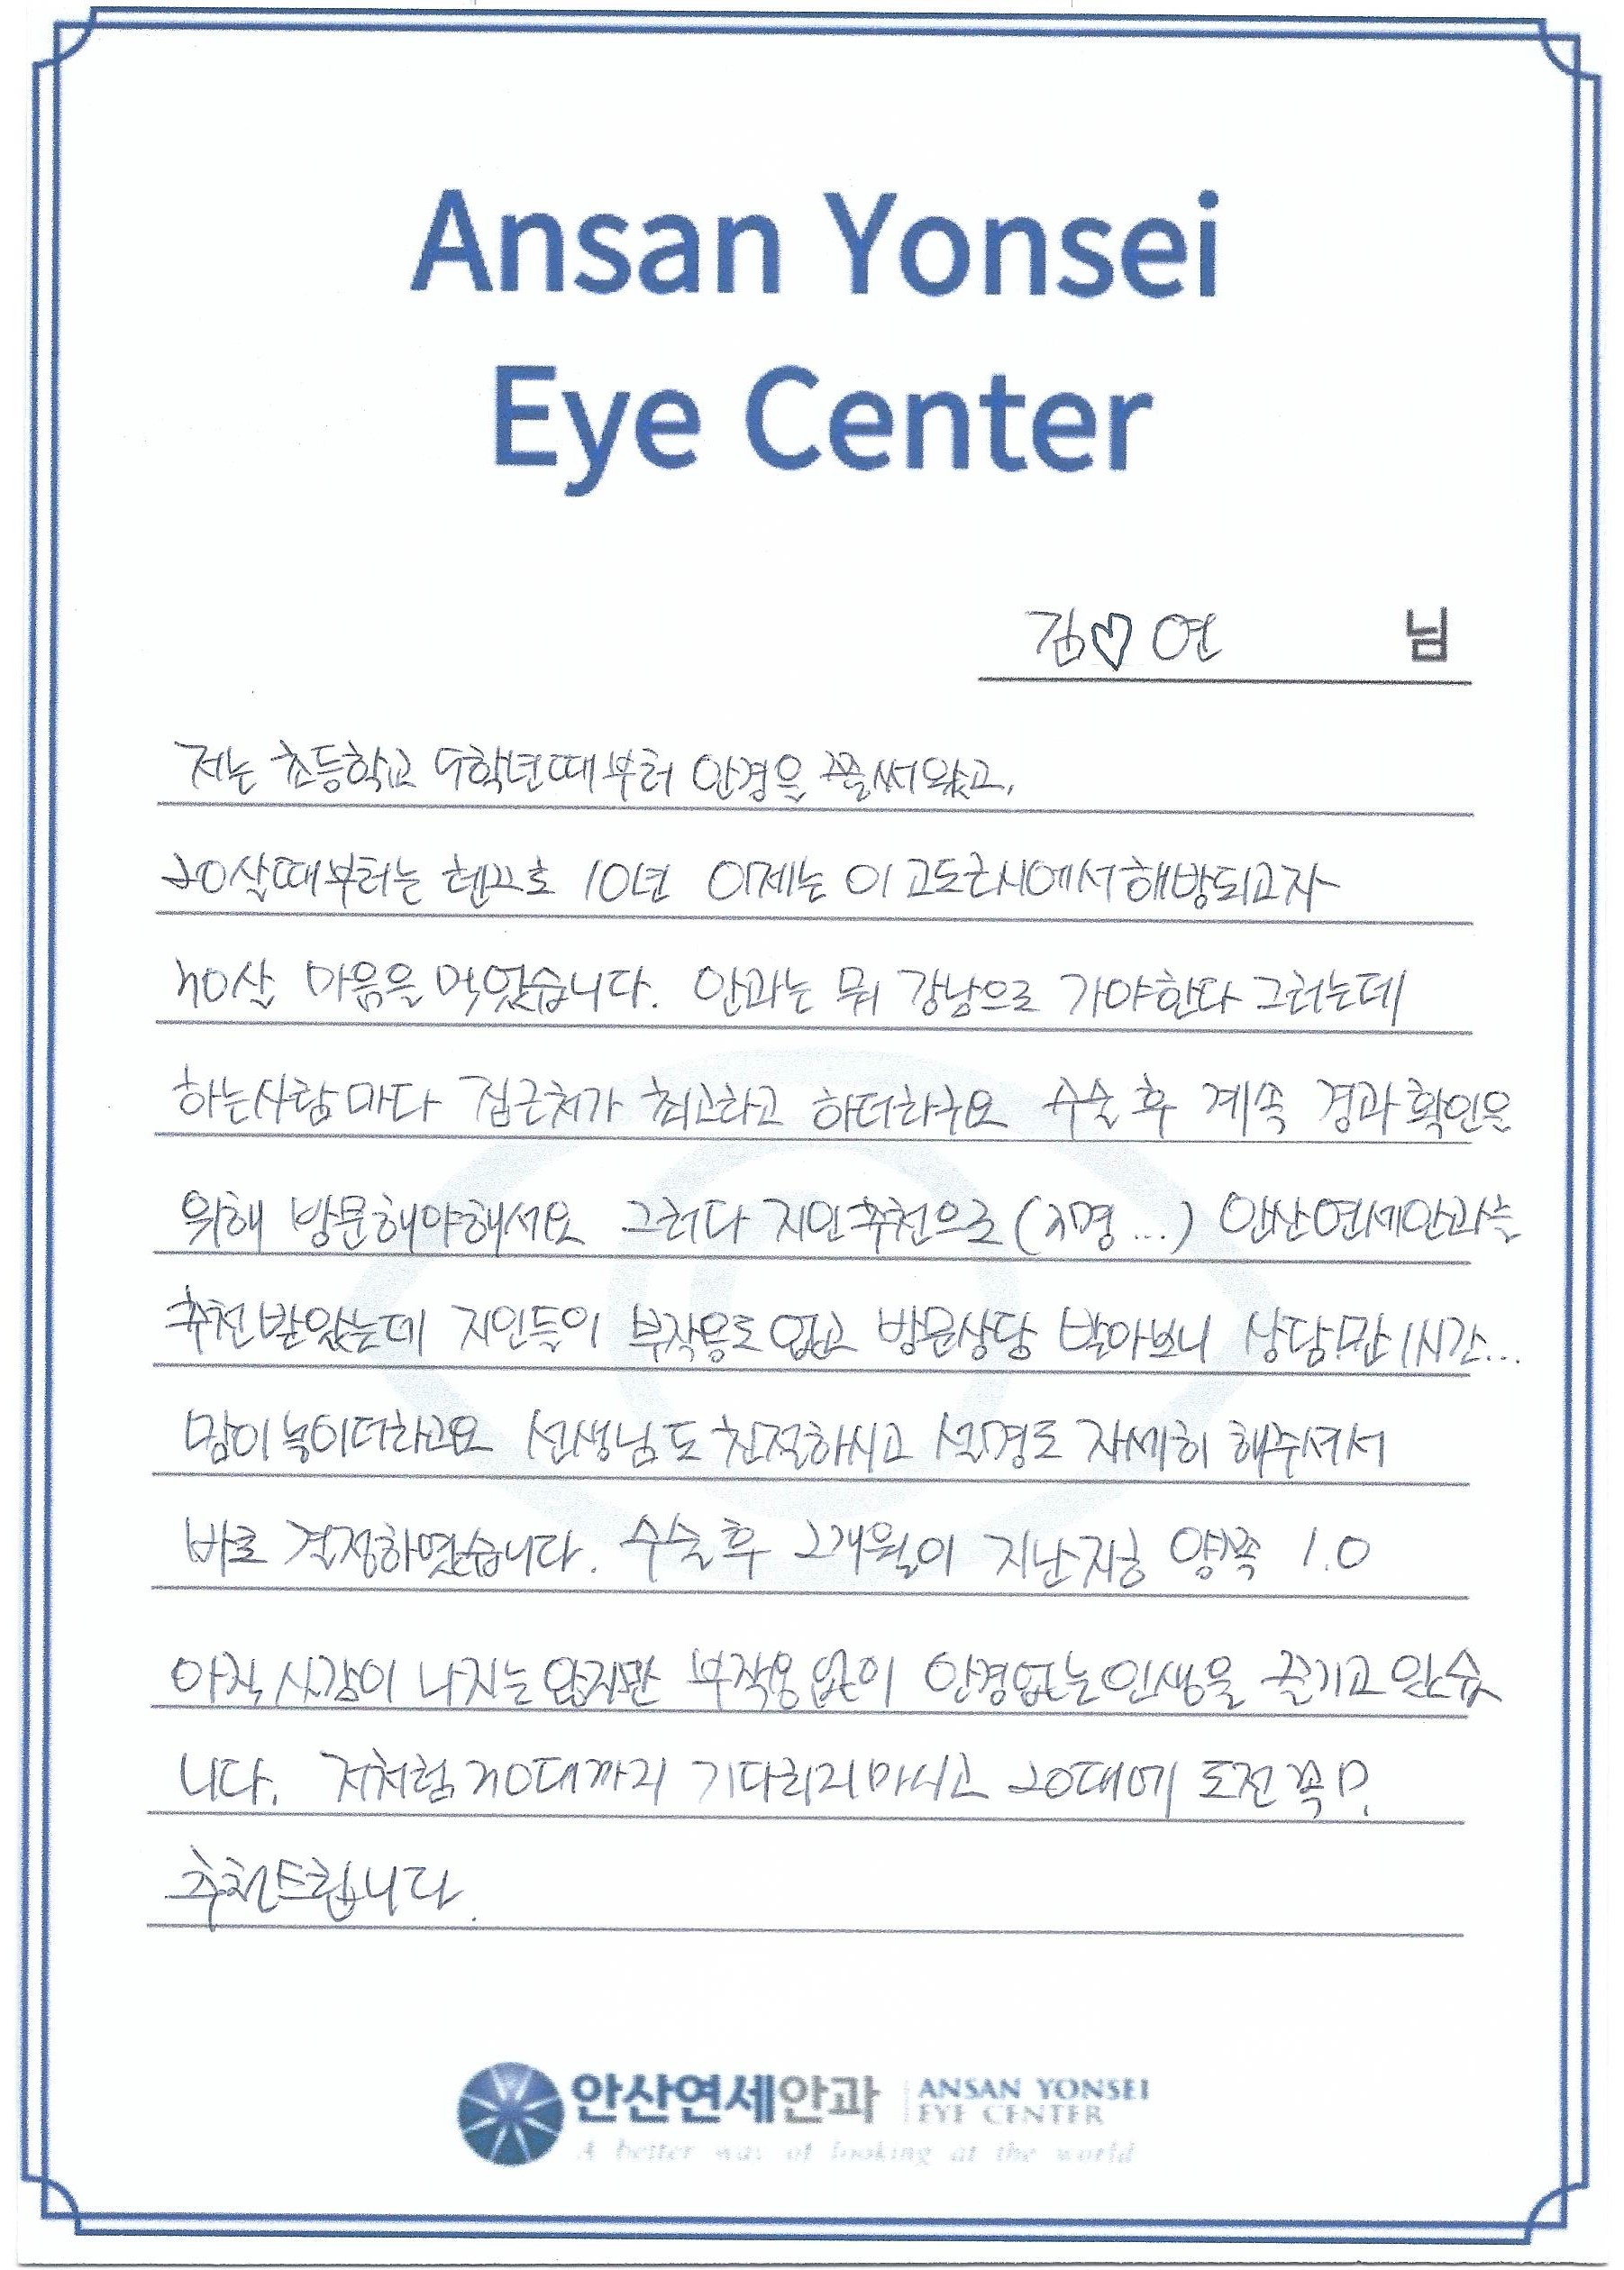 Ansan Yonsei
Eye Center
김♡연 님
저는 초등학교 5학년때부터 안경을 쭐써왔고,
20살때부터는 렌즈로 10년 이제는 이 고도근시에서 해방되고자
30살 마음을 먹었습니다. 안과는 뭐 강남으로 가야한다 그러는데
하는사람마다 집근처가 최고라고 하더라구요 수술 후 계속 경과확인을
위해 방문해야해서요 그러다 지인추천으로 (2명...) 안산연세안과는
추천받았는데 지인들이 부작용도없고 방문상담 받아보니 상담만 1시간...
맘이 놓이더라고요 선생님도 친절하시고 설명도 자세히 해주셔서
바로 결정하였습니다. 수술 후 2개월이 지난지금 양쪽 1.0
아직 시력이 나지는 않지만 부작용없이 안경없는인생을 즐기고있습
니다. 저처럼 30대까지 기다리지마시고 20대에 도전 꼭!?
추천드립니다.
안산연세안과 ANSAN YONSEI
EYE CENTER
A better way of looking at the world